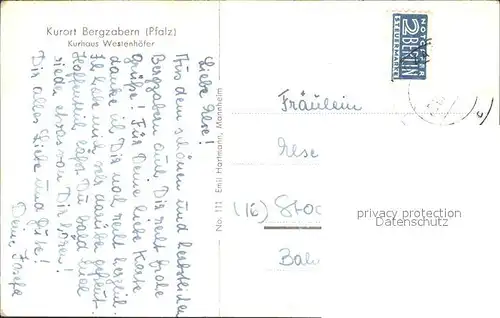 Kurort Bergzabern (Pfalz)
Kurhaus Westenhöfer
Liebe Ilse!
Aus dem schönen und herbstlichen
Bergzabern auch Dir recht frohe
Grüße! Für Deine liebe Karte
danke ich Dir noch recht herzlich.
Ich habe mich sehr darüber gefreut.
Hoffentlich läßt Du bald mal
wieder etwas von Dir hören!
Dir alles Liebe und Gute!
Deine Josefa
No. 111 Emil Hartmann, Mannheim
NOTOPFER
2 BERLIN
STEUERMARKE
Fräulein
Ilse
(16) Stoc
Bah
privacy protection
Datenschutz